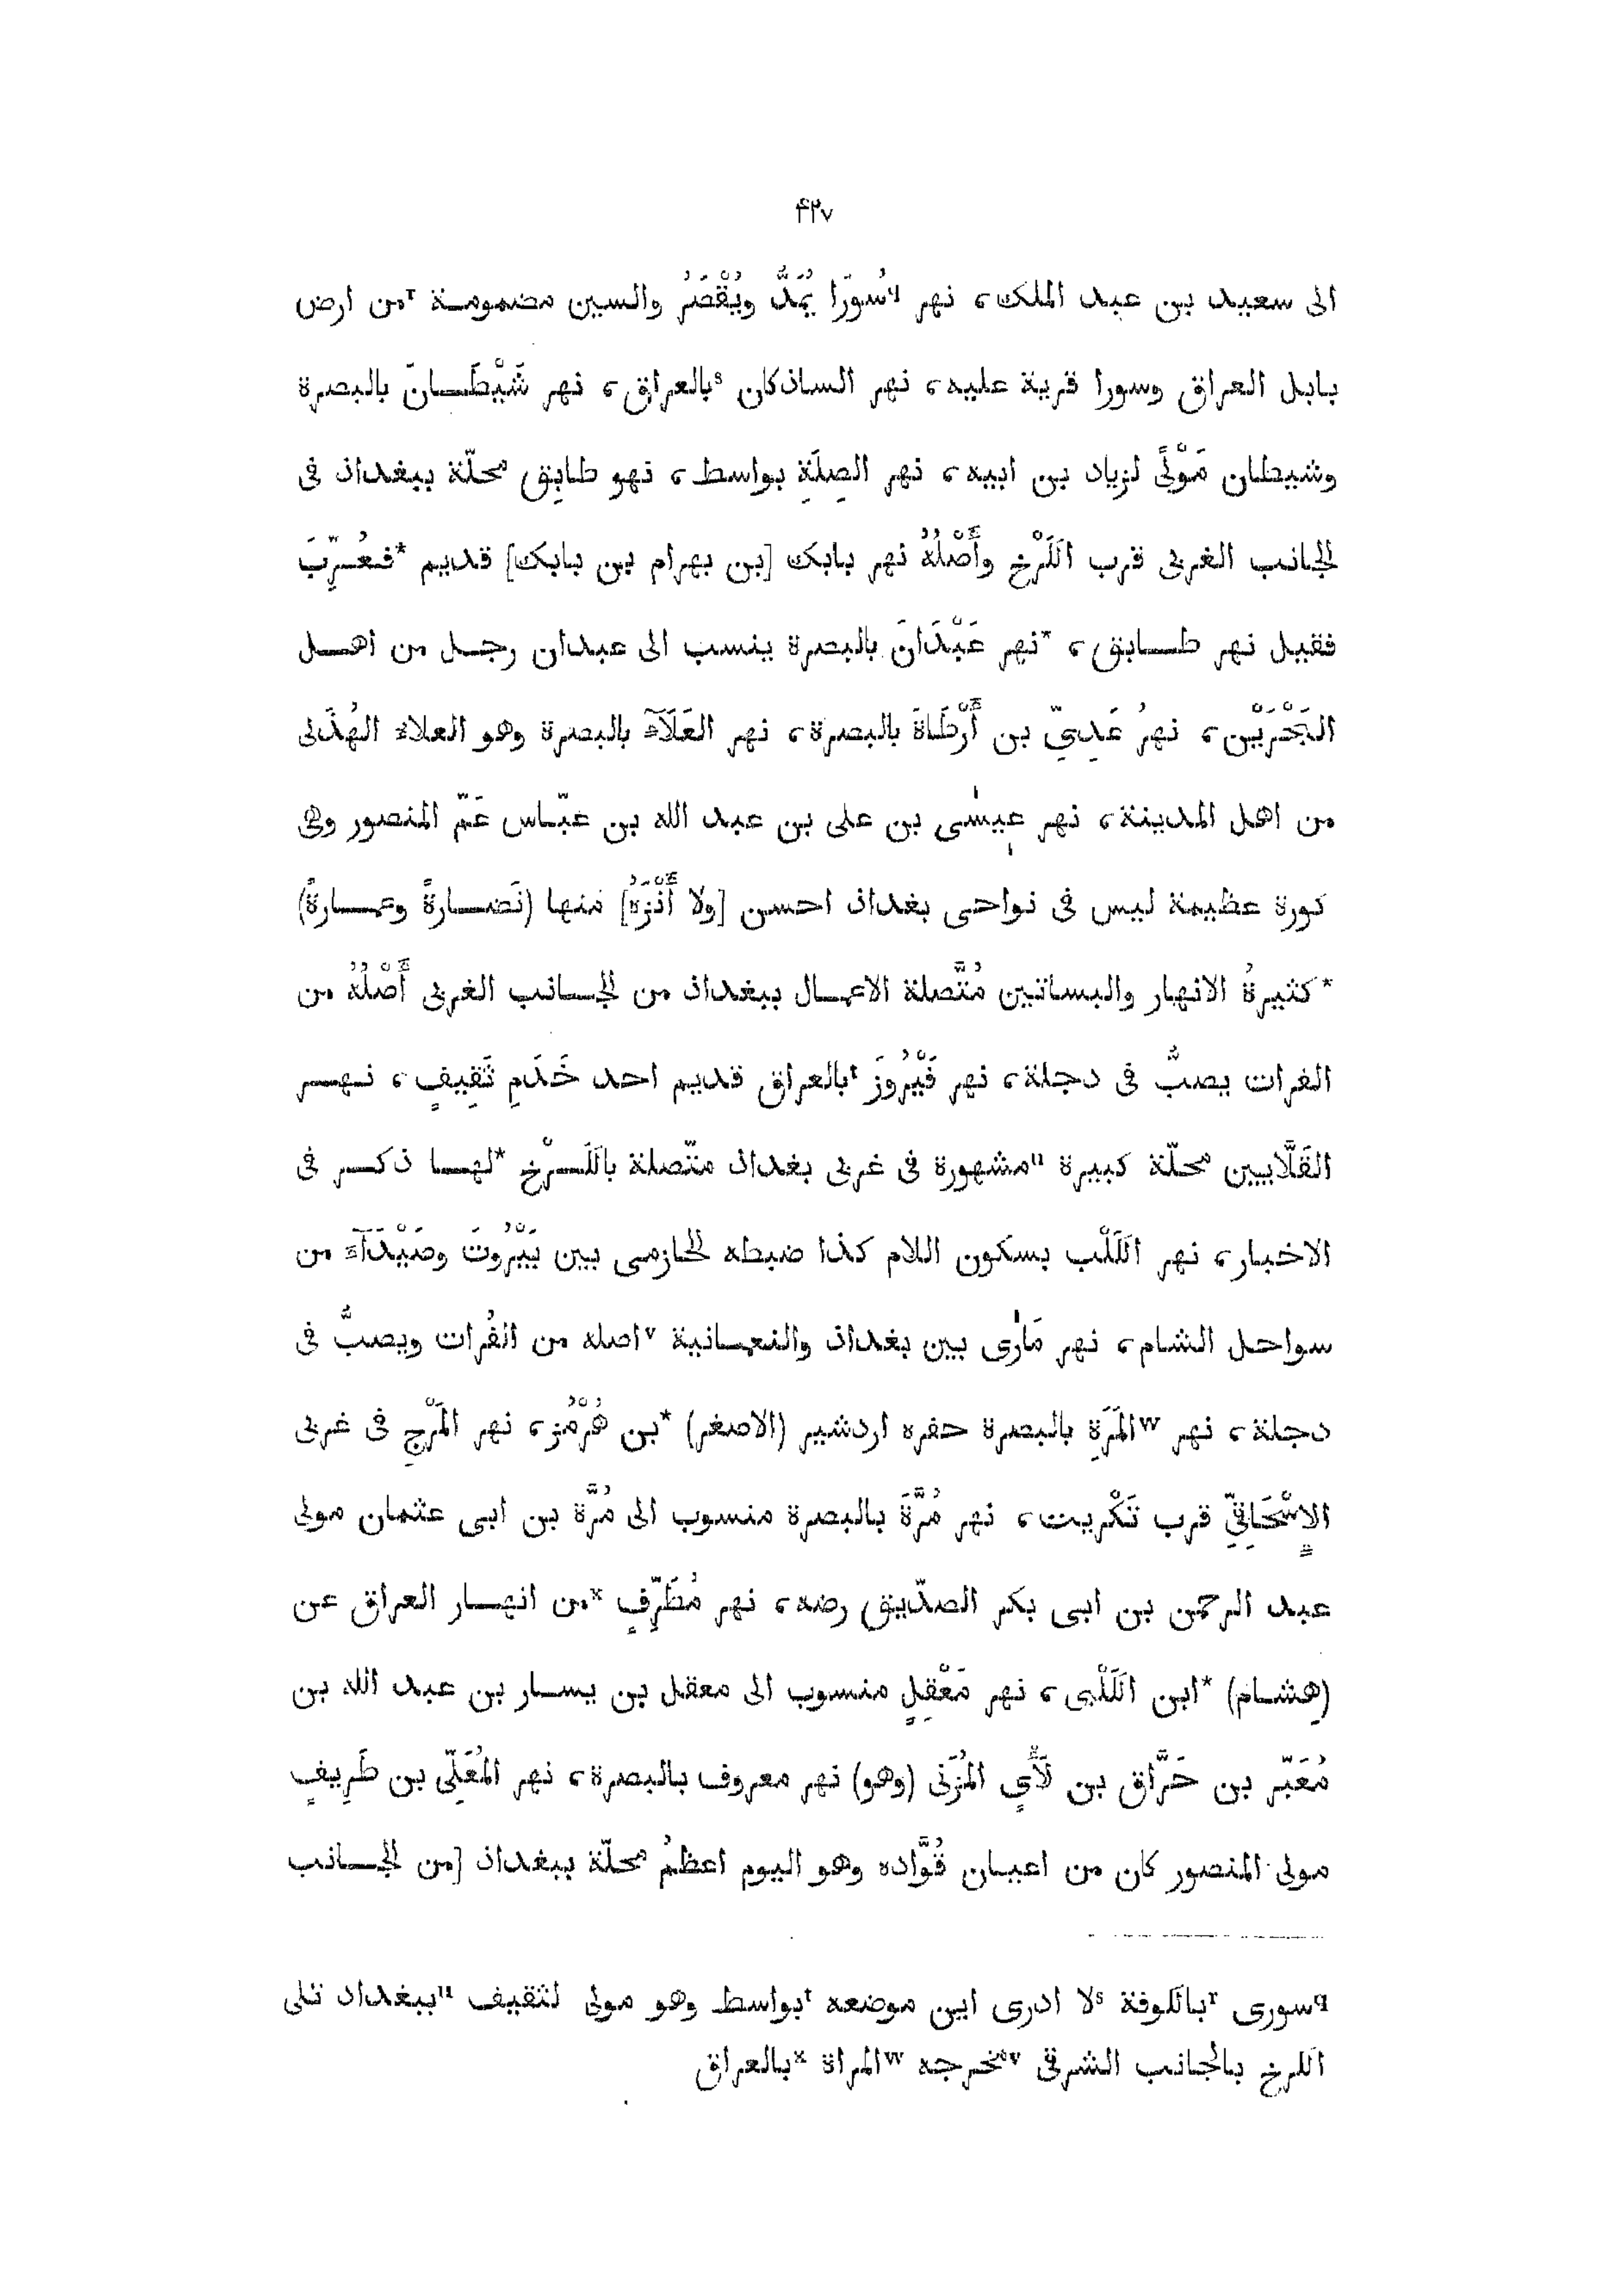 ۴۲۷
الى سعيد بن عبد الملك، نهر qسُورَا يُمَدُّ ويُقْصَرُ والسين مضمومة rمن ارض
بابل العراق وسورا قرية عليه، نهر الساذكان sبالعراق، نهر شَيْطَـانَ بالبصرة
وشيطان مَوْلًى لزياد بن ابيه، نهر الصِلَةِ بواسط، نهو طابِق محلّة ببغداذ فى
الجانب الغربى قرب الكَرْخ وأَصْلُهُ نهر بابك [بن بهرام بن بابك] قديم *فعُـرِّبَ
فقيل نهر طـابق، *نهر عَبْدَانَ بالبصرة ينسب الى عبدان رجـل من اهـل
البَحْرَيْن، نهرُ عَدِىِّ بن أَرْطَاةَ بالبصرة، نهر العَلَآءَ بالبصرة وهو العلاء الهُذَلى
من اهل المدينة، نهر عِيسٰى بن على بن عبد الله بن عبّاس عَمّ المنصور وهى
كورة عظيمة ليس فى نواحى بغداذ احسن [ولا أَنْزَهُ] منها (نَضـارةً وعمـارةً)
*كثيرةُ الانهار والبساتين مُتَّصلة الاعمـال ببغداذ من الجـانب الغربى أَصْلُهُ من
الفرات يصبُّ فى دجلة، نهر فَيْرُوزَ tبالعراق قديم احد خَدَمِ ثَقِيفٍ، نـهـر
القَلَّابيين محلّة كبيرة uمشهورة فى غربى بغداذ متّصلة بالكَـرْخ *لهـا ذكـر فى
الاخبار، نهر الكَلْب بسكون اللام كذا ضبطه الحازمى بين بَيْرُوتَ وصَيْدَآءَ من
سواحل الشام، نهر مَارٰى بين بغداذ والنعمـانية vاصله من الفُرات ويصبُّ فى
دجلة، نهر wالمَرَةِ بالبصرة حفره اردشير (الاصغر) *بن هُرْمُز، نهر المَرْجِ فى غربى
الإِسْحَاقِىِّ قرب تَكْرِيت، نهر مُرَّةَ بالبصرة منسوب الى مُرَّة بن ابى عثمان مولى
عبد الرحمن بن ابى بكر الصدّيق رضه، نهر مُطَرِّفٍ xمن انهـار العراق عن
(هِشـام) *ابن الكَلْبى، نهر مَعْقِلٍ منسوب الى معقل بن يسـار بن عبد الله بن
مُعَبّر بن حَرَّاق بن لَأْىٍ المُزَنى (وهو) نهر معروف بالبصرة، نهر المُعَلِّى بن طَرِيفٍ
مولى المنصور كان من اعيـان قُوَّاده وهو اليوم اعظمُ محلّة ببغداذ [من الجـانب
qسورى rبالكوفة sلا ادرى اين موضعه tبواسط وهو مولى لثقيف uببغداد تلى
الكرخ بالجانب الشرقى vمخرجه wالمراة xبالعراق